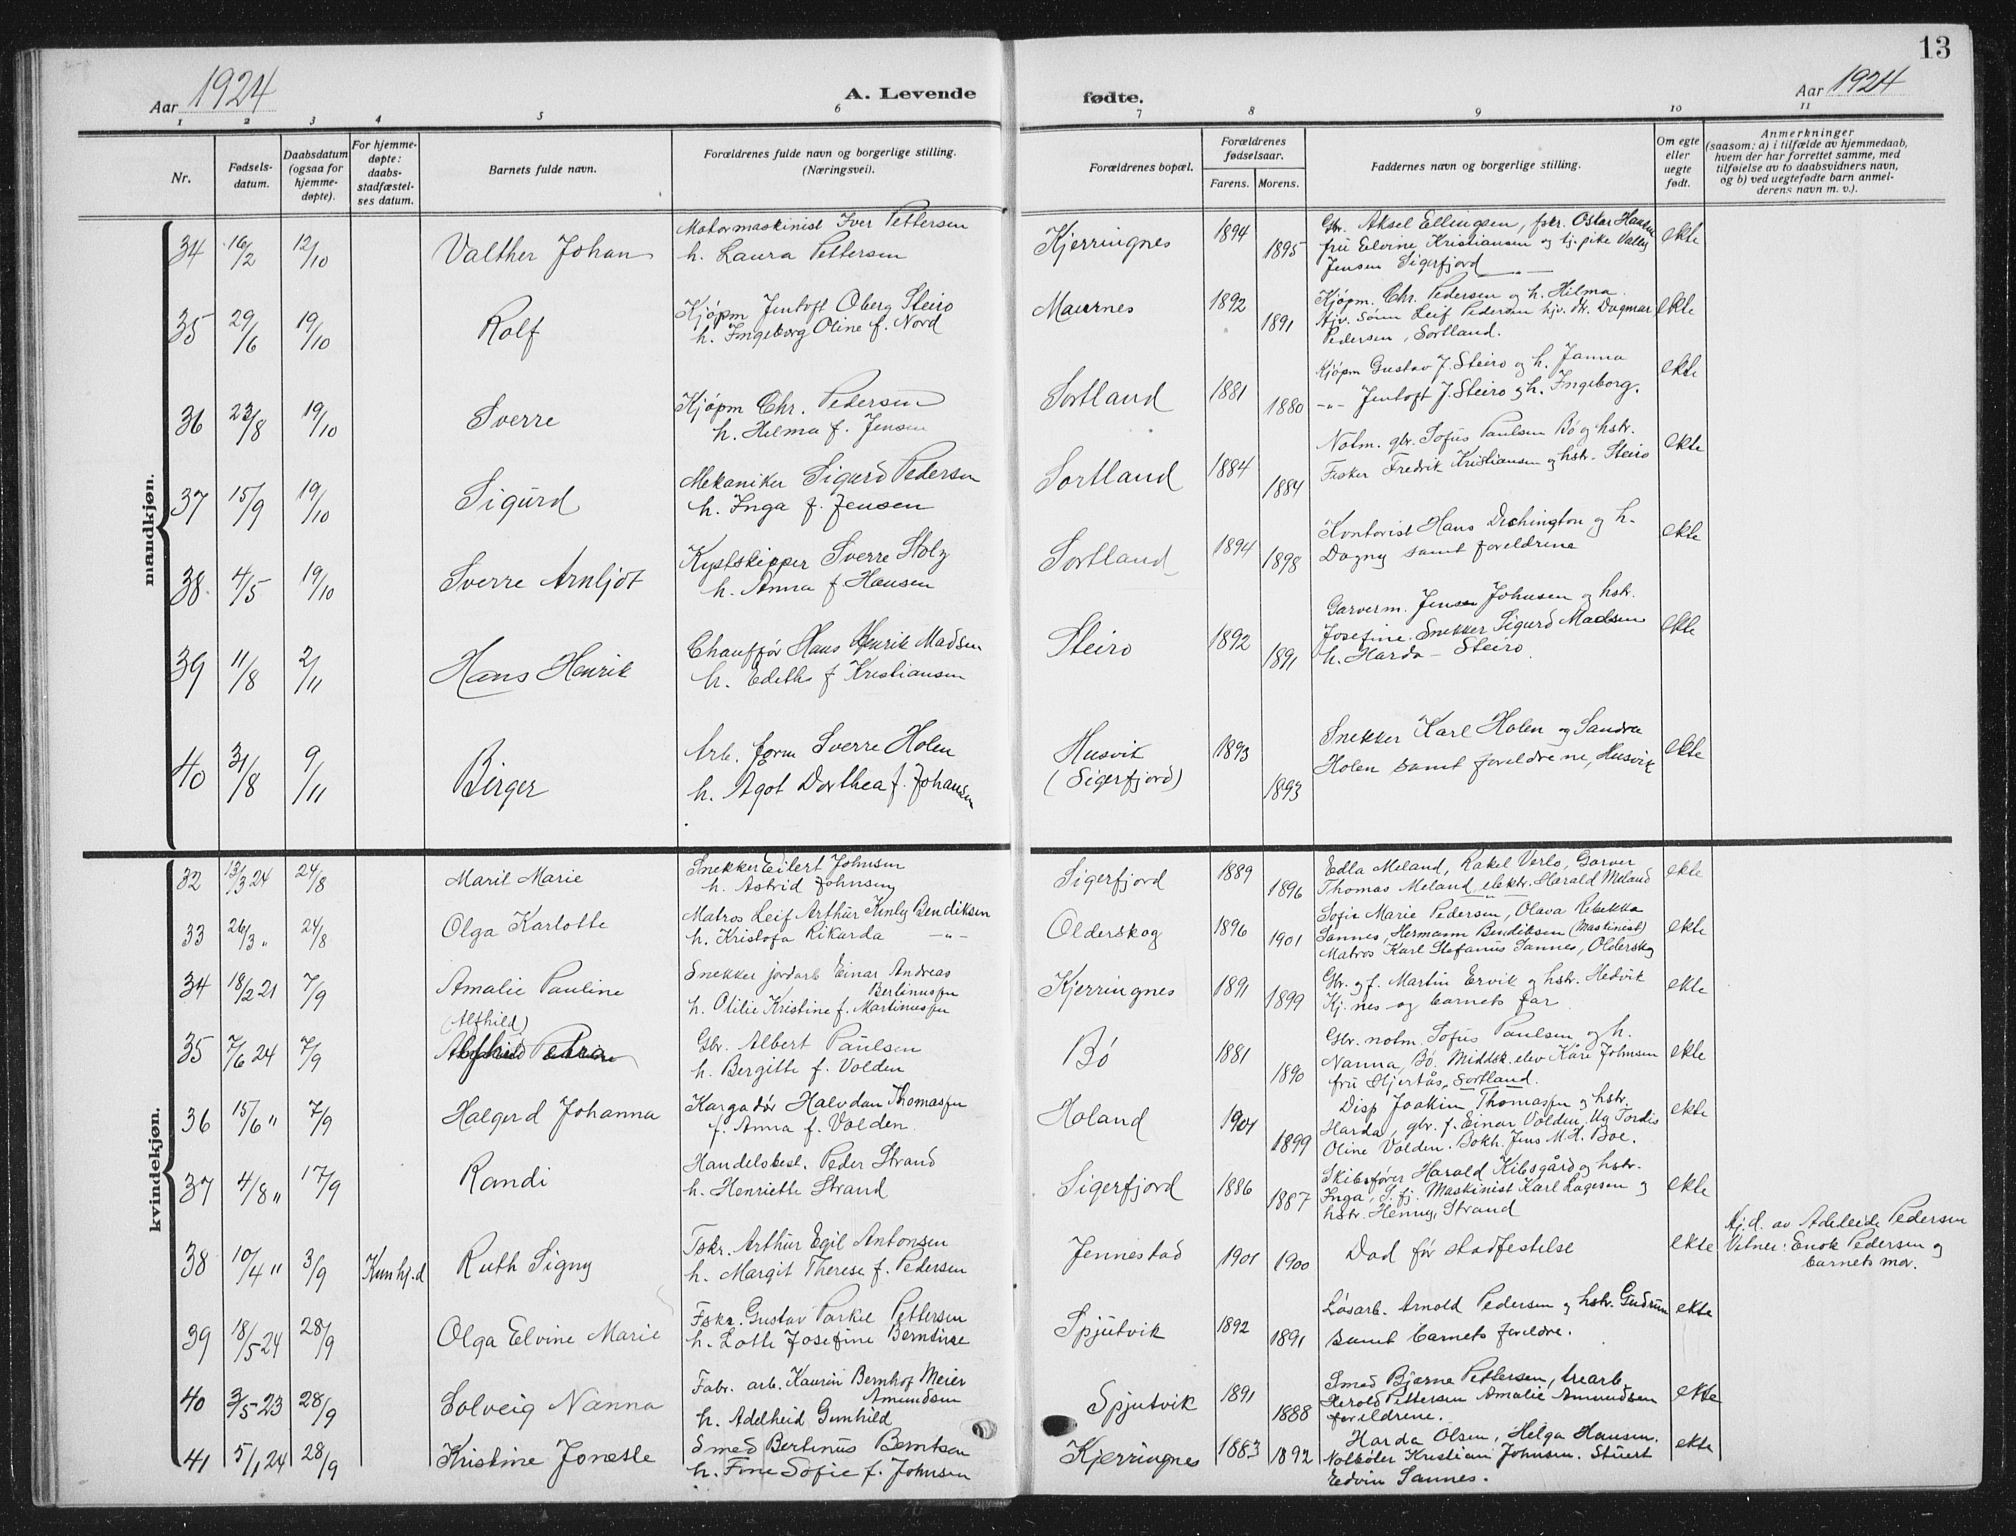 13
Aar 1924
A. Levende fødte.
Aar 1924
1 2 3 4 5 6 7 8 9 10 11
Nr.
Fødsels-
datum.
Daabsdatum
(ogsaa for
hjemme-
døpte).
For hjemme-
døpte:
daabs-
stadfæstel-
ses datum.
Barnets fulde navn.
Forældrenes fulde navn og borgerlige stilling.
(Næringsvei).
Forældrenes bopæl.
Forældrenes
fødselsaar.
Farens. Morens.
Faddernes navn og borgerlige stilling.
Om egte
eller
uegte
født.
Anmerkninger
(saasom: a) i tilfælde av hjemmedaab,
hvem der har forrettet samme, med
tilføielse av to daabsvidners navn,
og b) ved uegtefødte barn anmel-
derens navn m. v.).
mandkjøn.
34 16/2 12/10 Valther Johan
Motormaskinist Iver Pettersen
h. Laura Pettersen
Kjerringnes 1894 1895
Gbr. Aksel Ellingsen, fskr. Oskar Hansen
fru Elvine Kristiansen og tj. pike Valley
Jensen Sigerfjord
ekte
35 29/6 19/10 Rolf
Kjøpm Jentoft Oberg Steiro
h. Ingeborg Oline f. Nord
Maurnes 1892 1891
Kjøpm. Chr. Pedersen og h. Hilma
Hjv. sønn Leif Pedersen hjv. dt. Dagmar
Pedersen, Sortland.
ekte
36 23/8 19/10 Sverre
Kjøpm Chr. Pedersen
h. Hilma f. Jensen
Sortland 1881 1880
Kjøpm Gustav J. Steiro og h. Janna
-"- Jentoft J. Steiro og h. Ingeborg.
ekte
37 15/9 19/10 Sigurd
Mekaniker Sigurd Pedersen
h. Inga f. Jensen
Sortland 1884 1884
Notm. gbr. Sofus Paulsen Bø og hstr.
Fisker Fredrik Kristiansen og hstr. Steiro
ekte
38 4/5 19/10 Sverre Arnljot
Kystskipper Sverre Stolz
h. Anna f Hansen
Sortland 1894 1898
Kontorist Hans Drchington og h.
Dagny samt foreldrene
ekte
39 11/8 2/11 Hans Henrik
Chauffør Hans Henrik Madsen
h. Edith f Kristiansen
Steiro 1892 1891
Garverm. Jens Johnsen og hstr.
Josefine. Snekker Sigurd Madsen
h. Harda – Steiro.
ekte
40 31/8 9/11 Birger
Arb. form Sverre Holen
h. Agot Dorthea f. Johansen
Husvik
(Sigerfjord)
1893 1893
Snekker Karl Holen og Sandra
Holen samt foreldrene, Husvik
ekte
kvindekjøn.
32 13/3 24 24/8 Marit Marie
Snekker Eilert Johnsen
h. Astrid Johnsen
Sigerfjord 1889 1896
Edla Meland, Rakel Verlo, Garver
Thomas Meland, elektr. Harald Meland
ekte
33 26/3 " 24/8 Olga Karlotte
Matros Leif Arthur Kinly Bendiksen
h. Kristofa Rikarda -"-
Olderskog 1896 1901
Sofie Marie Pedersen, Olava Rebekka
Sannes, Hermann Bendiksen (Maskinist)
Matros Karl Stefanus Sannes, Olderskog
ekte
34 18/2 21 7/9 Amalie Pauline
Snekker jordarb Einar Andreas
Bertinussen
h. Otilie Kristine f. Martinussen
Kjerringnes 1891 1899
Gbr. og f. Martin Ervik og hstr. Hedvik
Kj.nes og barnets far
ekte
35 7/6 24 7/9 (Alfhild)
Gbr. Albert Paulsen
h. Bergitte f. Volden
Bø 1881 1890
Gbr. notm. Sofus Paulsen og h.
Nanna, Bø. Middsk. elev Kåre Johnsen
fru Hjertås, Sortland.
ekte
36 15/6 " 7/9 Halgerd Johanna
Kargadør Halvdan Thomassen
f. Anna f. Volden.
Holand 1901 1899
Disp Joakim Thomassen og hstr.
Harda, gbr. f. Einar Volden. Ug Tordis
Oline Volden. Bokh. Jens M. A. Boe.
ekte
37 4/8 " 17/9 Randi
Handelsbest. Peder Strand
h. Henriette Strand
Sigerfjord 1886 1887
Skibsfører Harald Kibsgård og hstr.
Inga, S. fj. Maskinist Karl Lagesen og
hstr. Henny, Strand
ekte
38 10/4 " 3/9 Kun hj.d Ruth Signy
Fskr. Arthur Egil Antonsen
h. Margit Therese f. Pedersen
Jennestad 1901 1900
Død før stadfestelse
ekte
Hj.d. av Adeleide Pedersen
Vitner: Enok Pedersen og
barnets mor.
39 18/5 24 28/9 Olga Elvine Marie
Fskr. Gustav Parkel Pettersen
h. Lotte Josefine Berntine
Spjutvik 1892 1891
Løsarb. Arnold Pedersen og hstr. Gudrun
samt barnets foreldre.
ekte
40 3/5 23 28/9 Solveig Nanna
Fabr. arb. Kaurin Bernhof Meier
Amundsen
h. Adelheid Gunhild
Spjutvik 1891 1888
Smed Bjarne Pettersen, trearb
Herold Pettersen Amalie Amundsen
foreldrene.
ekte
41 5/1 24 28/9 Kristine Joneste
Smed Bertinus Berntsen
h. Fine Sofie f. Johnsen
Kjerringnes 1883 1892
Harda Olsen, Helga Hansen.
Notbøter Kristian Johnsen. Stuert
Edvin Sannes.
ekte